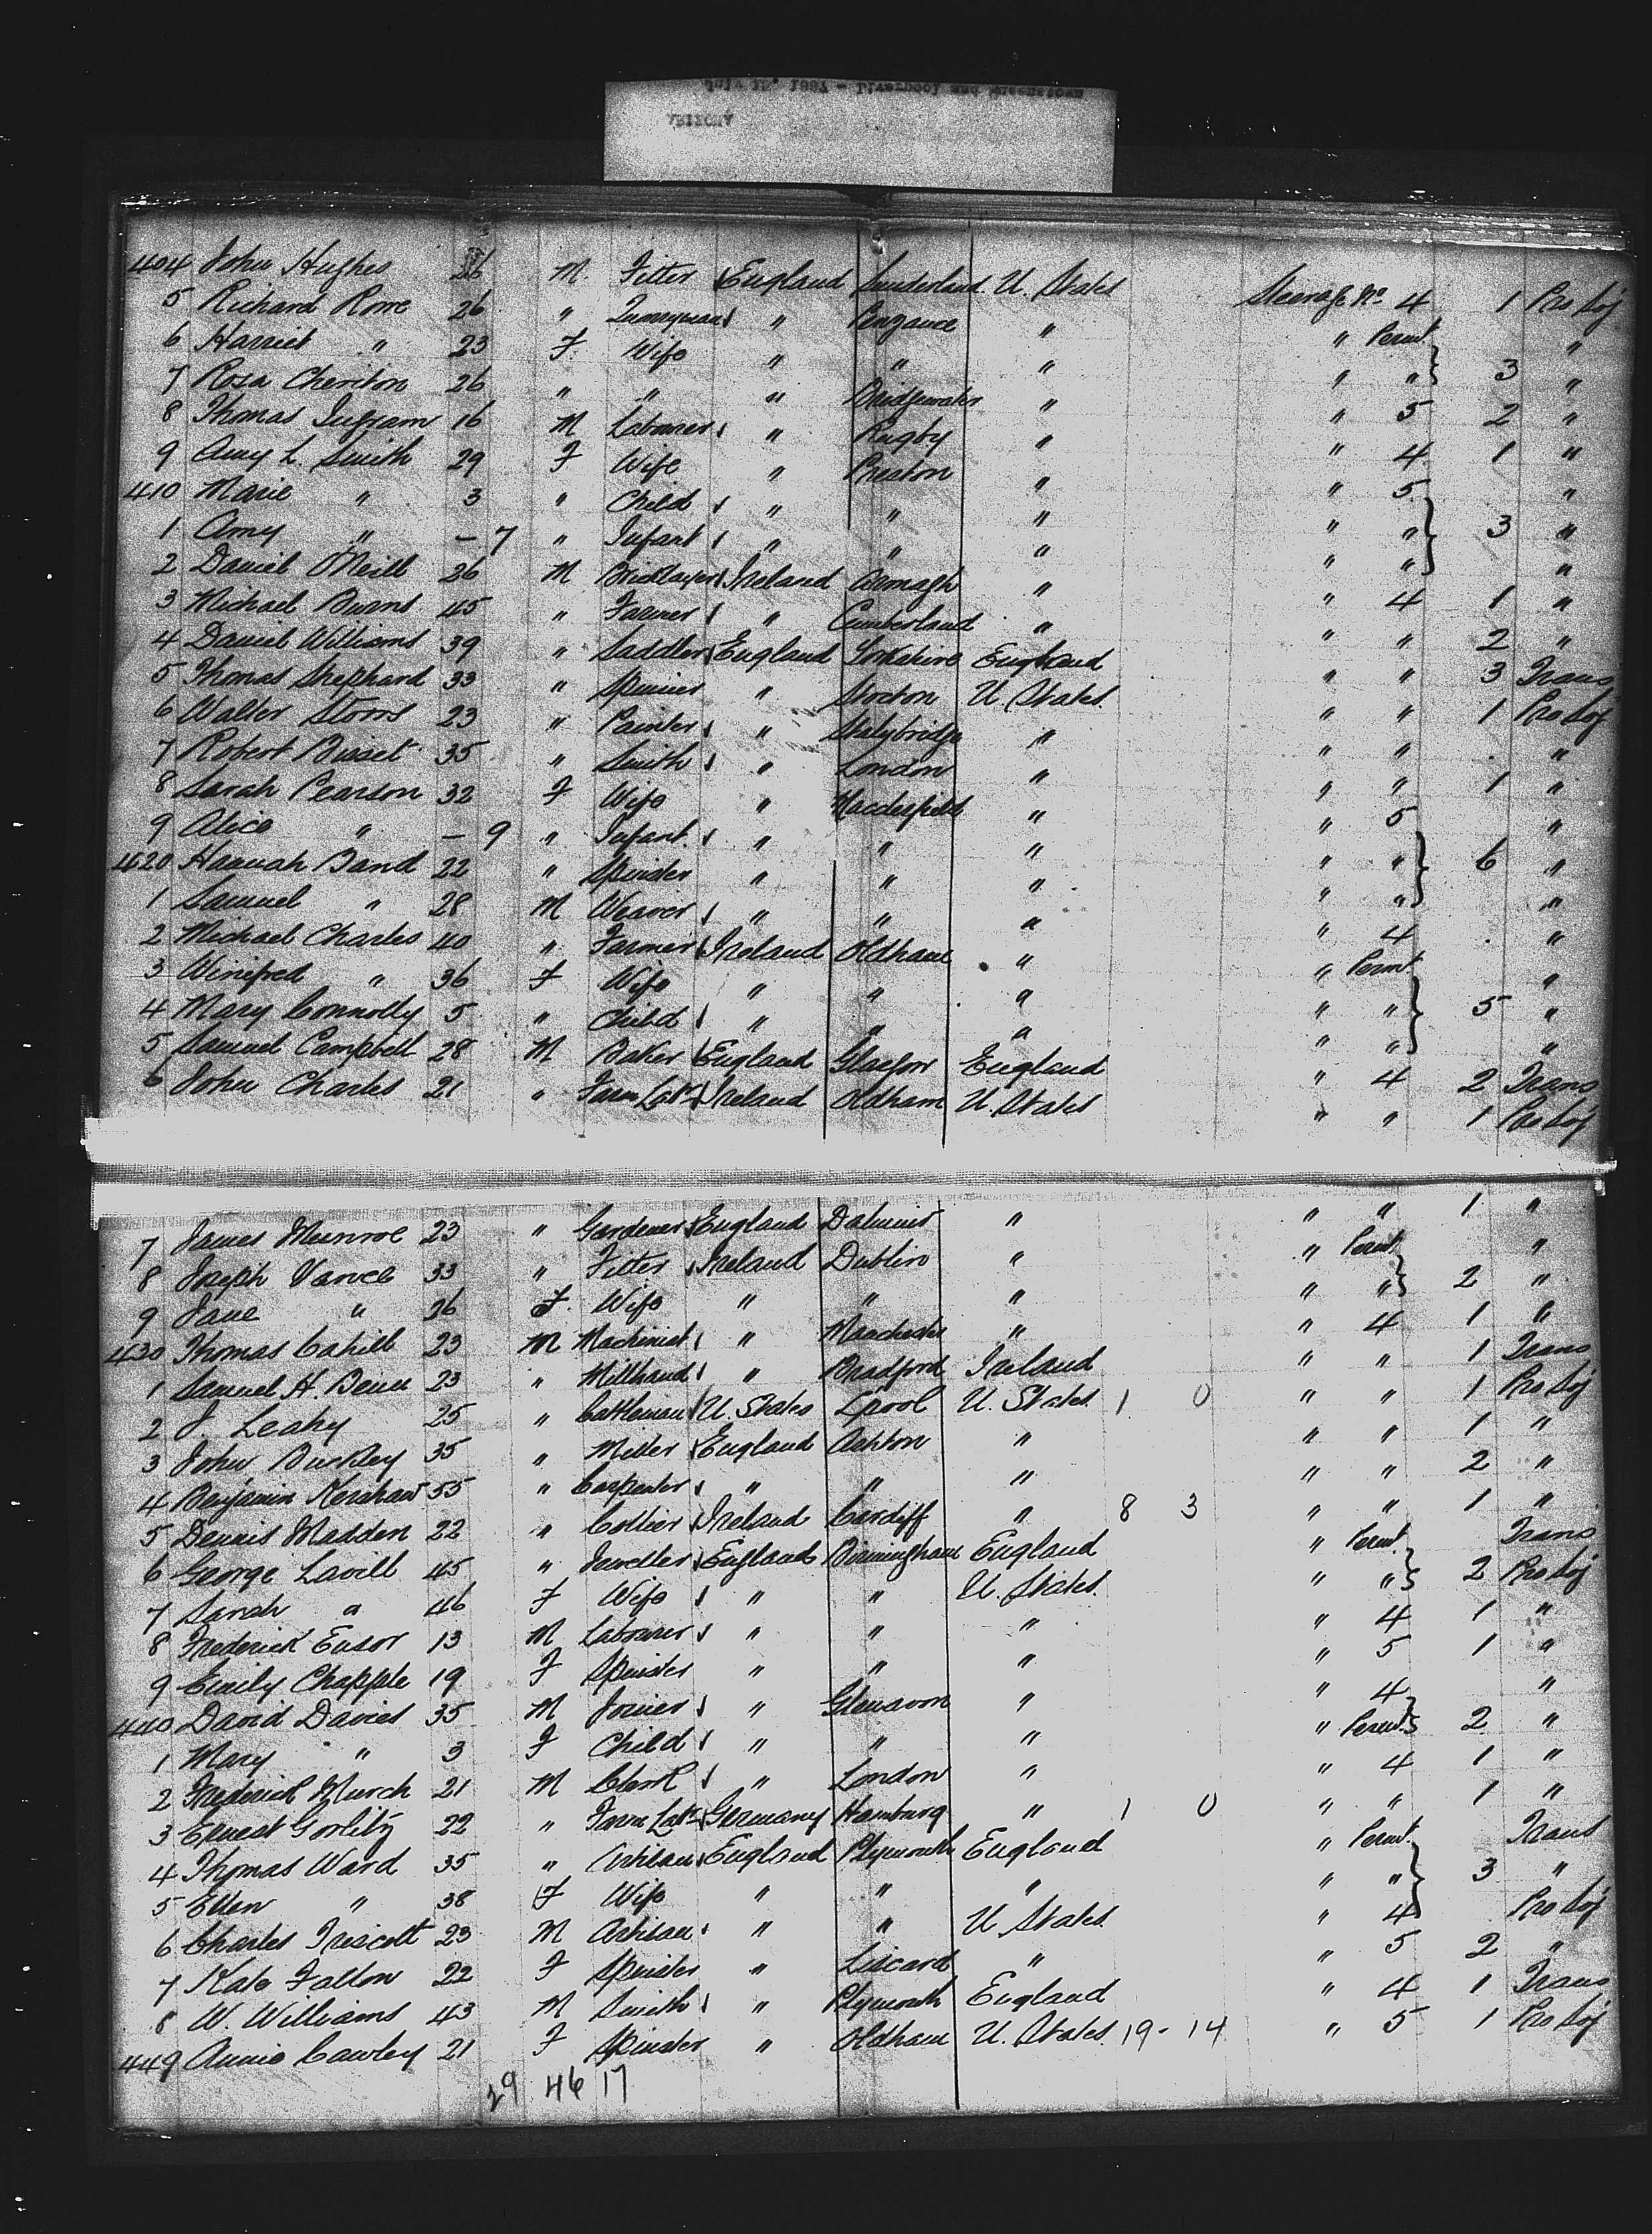 404 John Hughes 26 M. Fitter England Sunderland U. States Steerage No 4 1 Pro Soj
5 Richard Rowe 26 " Quarryman " Penzance " " Permt "
6 Harriet " 23 F. Wife " " " " " 3 "
7 Rosa Cheriton 26 " " " Bridgewater " " 5 2 "
8 Thomas Ingram 16 M Labourer " Rugby " " 4 1 "
9 Amy L. Smith 29 F Wife " Preston " " 5 "
410 Marie " 3 " Child " " " " " 3 "
1 Amy " - 7 " Infant " " " " " "
2 Daniel O'Neill 26 M Bricklayer Ireland Armagh " " 4 1 "
3 Michael Burns 45 " Farmer " Cumberland " " " 2 "
4 Daniel Williams 39 " Saddler England Yorkshire England " " 3 Trans
5 Thomas Shephard 33 " Spinner " U. States " " 1 Pro Soj
6 Walter Storrs 23 " Painter " Stalybridge " " " . "
7 Robert Bisset 35 " Smith " London " " " 1 "
8 Sarah Pearson 32 F Wife " Macclesfield " " 5 "
9 Alice " - 9 " Infant " " " " " 6 "
420 Hannah Band 22 " Spinster " " " " " "
1 Samuel " 28 M Weaver " " " " 4 . "
2 Michael Charles 40 " Farmer Ireland Oldham " " Permt "
3 Winifred " 36 F Wife " " " " " 5 "
4 Mary Connolly 5 " Child " " " " " "
5 Samuel Campbell 28 M Baker England Glasgow England " 4 2 Trans
6 John Charles 21 " Farm Labr Ireland Oldham U. States " " 1 Pro Soj
7 James Munroe 23 " Gardener England " " " 1 "
8 Joseph Vance 33 " Fitter Ireland Dublin " " Permt "
9 Jane " 26 F. Wife " " " " " 2 "
430 Thomas Cahill 23 M Machinist " Manchester " " 4 1 "
1 Samuel H. 23 " Millhand " Bradford Ireland " " 1 Trans
2 J. Leahy 25 " Cattleman U. States L'pool U. States 1 0 " " 1 Pro Soj
3 John Buckley 35 " Miller England Ashton " " " 1 "
4 Benjamin Kershaw 55 " Carpenter " " " " " 2 "
5 Dennis Madden 22 " Collier Ireland Cardiff " 8 3 " " 1 "
6 George Lavill 45 " Jeweller England Birmingham England " Permt Trans
7 Sarah " 46 F Wife " " U. States " " 2 Pro Soj
8 Frederick Ensor 13 M Labourer " " " " 4 1 "
9 Emily Chapple 19 F Spinster " " " " 5 1 "
440 David Davies 35 M Joiner " " " 4 "
1 Mary " 3 F Child " " " " Permt 2 "
2 Frederick Murch 21 M Clerk " London " " 4 1 "
3 Ernest Gorlitz 22 " Farm Labr Germany Hamburg " 1 0 " " 1 "
4 Thomas Ward 35 " Artisan England Plymouth England " Permt Trans
5 Ellen " 38 F Wife " " " " " 3 "
6 Charles Triscott 23 M Artisan " " U. States " 4 Pro Soj
7 Kate Fallon 22 F Spinster " Liscard " " 5 2 "
8 W. Williams 43 M Smith " Plymouth England " 4 1 Trans
449 Annie Cawley 21 F Spinster " Oldham U. States 19 - 14 " 5 1 Pro Soj
29 46 17